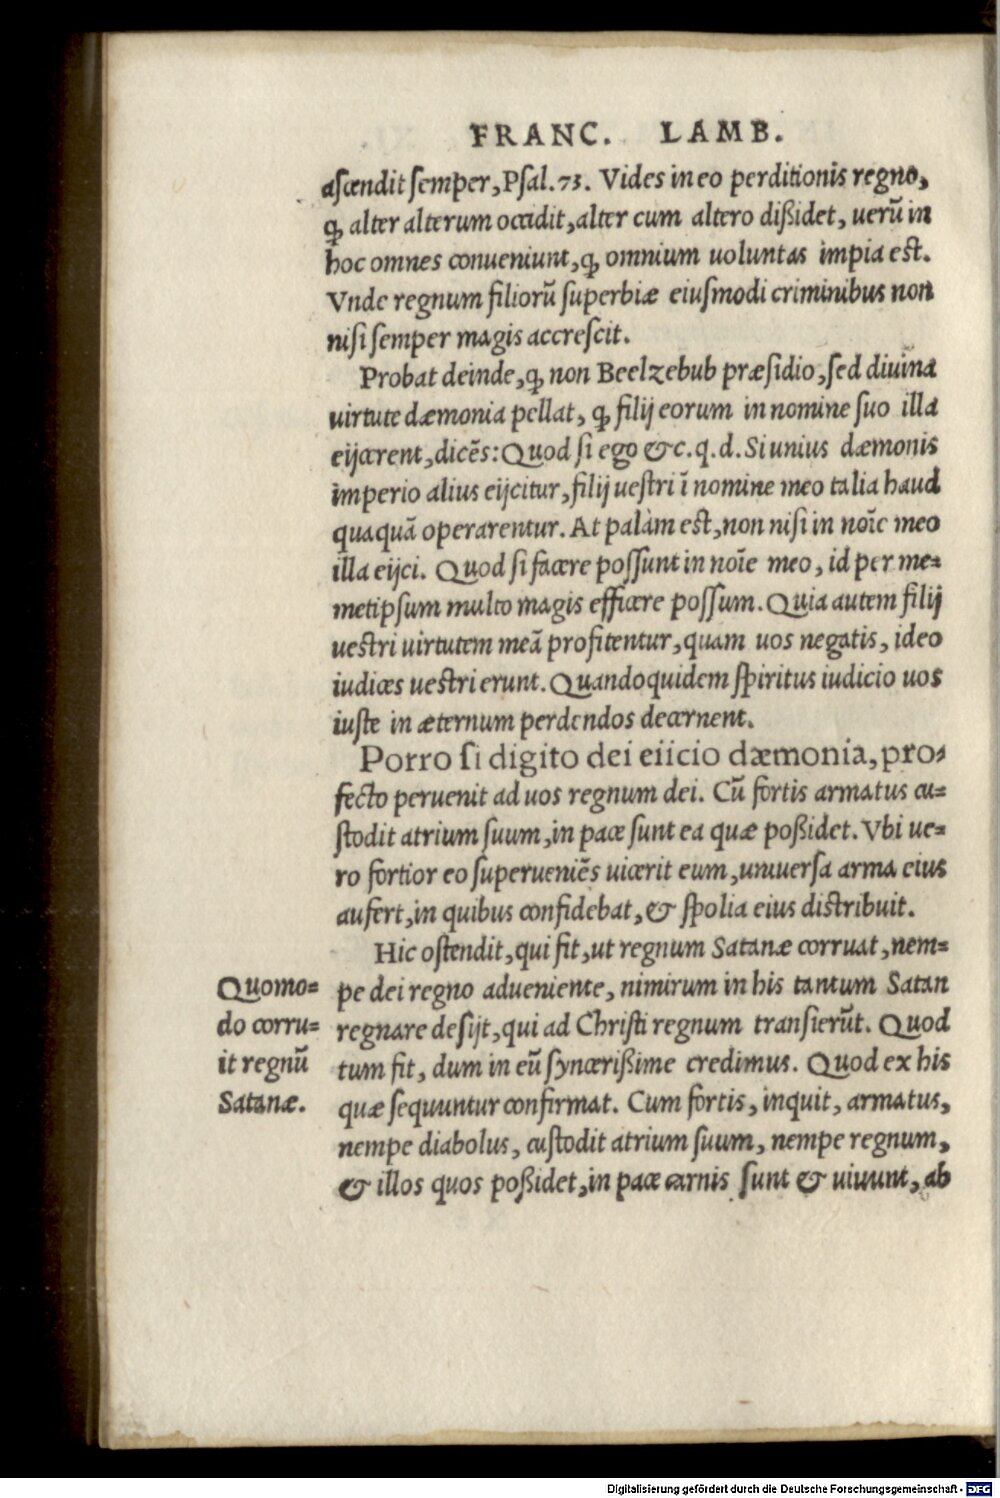 FRANC. LAMB.
ascendit semper, Psal.73. Vides in eo perditionis regno,
ꝙ alter alterum occidit, alter cum altero dißidet, uerũ in
hoc omnes conueniunt, ꝙ omnium uoluntas impia est.
Vnde regnum filiorũ superbiæ eiusmodi criminibus non
nisi semper magis accrescit.
Probat deinde, ꝙ non Beelzebub præsidio, sed diuina
uirtute dæmonia pellat, ꝙ filij eorum in nomine suo illa
eijcerent, dicẽs: Quod si ego &c. q. d. Si unius dæmonis
imperio alius eijcitur, filij uestri ĩ nomine meo talia haud
quaquã operarentur. At palàm est, non nisi in noĩe meo
illa eijci. Quod si facere possunt in noĩe meo, id per me=
metipsum multo magis efficere possum. Quia autem filij
uestri uirtutem meã profitentur, quam uos negatis, ideo
iudices uestri erunt. Quandoquidem spiritus iudicio uos
iuste in æternum perdendos decernent.
Porro si digito dei eiicio dæmonia, pro-
fecto peruenit ad uos regnum dei. Cũ fortis armatus cu=
stodit atrium suum, in pace sunt ea quæ poßidet. Vbi ue=
ro fortior eo superueniẽs uicerit eum, uniuersa arma eius
aufert, in quibus confidebat, & spolia eius distribuit.
Hic ostendit, qui fit, ut regnum Satanæ corruat, nem=
pe dei regno adueniente, nimirum in his tantum Satan
regnare desijt, qui ad Christi regnum transierũt. Quod
tum fit, dum in eũ syncerißime credimus. Quod ex his
quæ sequuntur confirmat. Cum fortis, inquit, armatus,
nempe diabolus, custodit atrium suum, nempe regnum,
& illos quos poßidet, in pace carnis sunt & uiuunt, ab
Quomo=
do corru=
it regnũ
Satanæ.
Digitalisierung gefördert durch die Deutsche Forschungsgemeinschaft - DFG